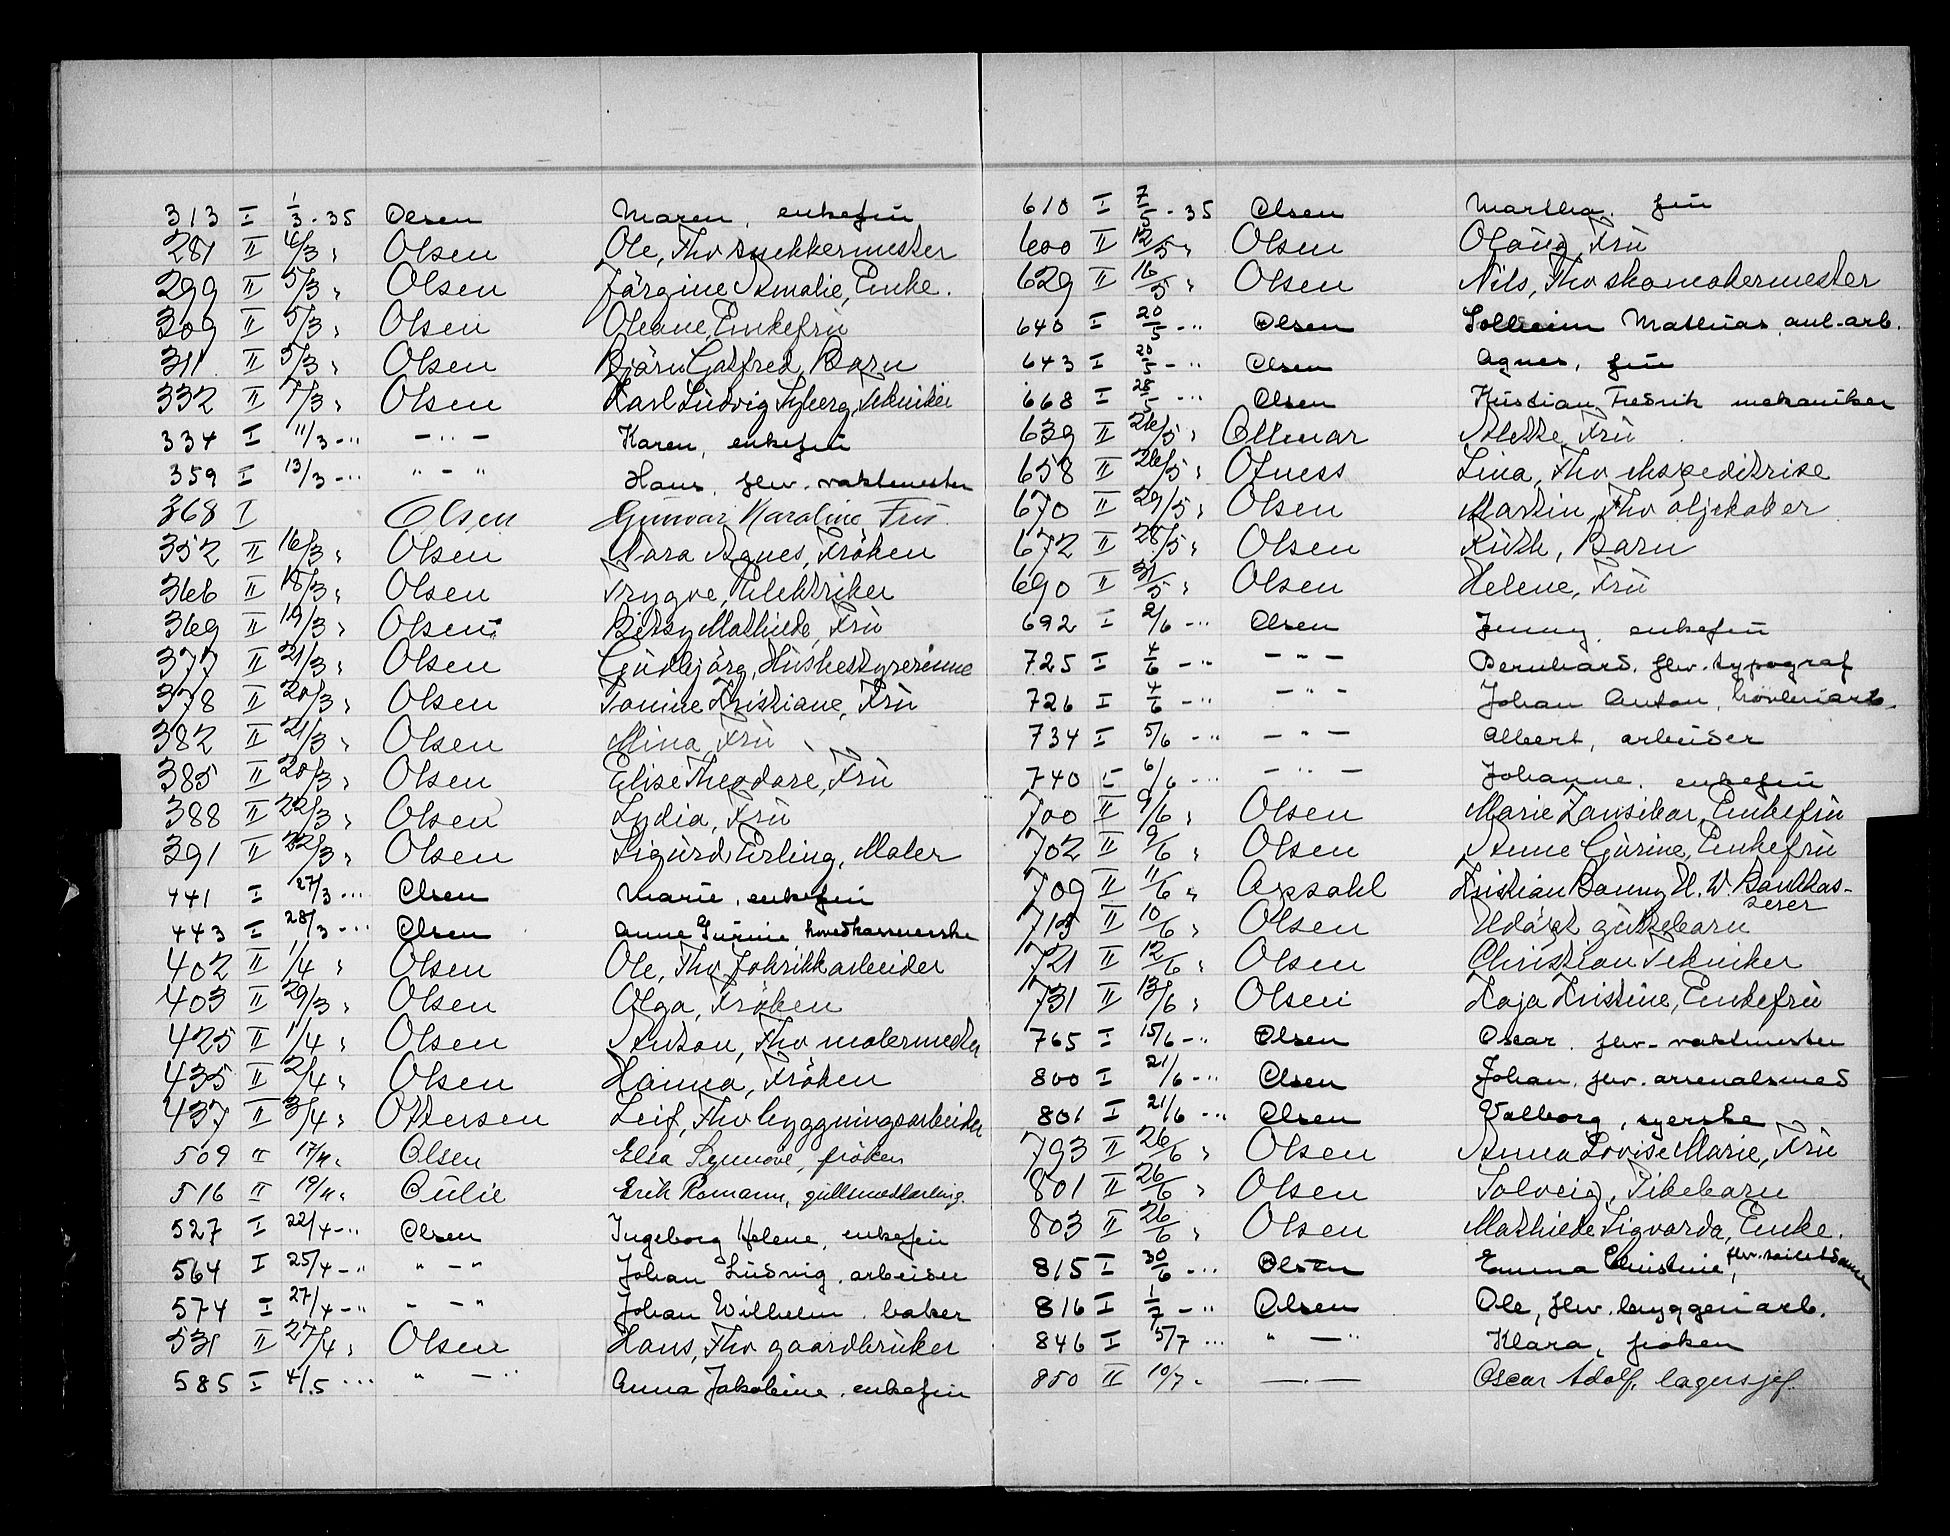 313 I 1/3 - 35 Olsen Maren, enkefru
281 II 4/3 " Olsen Ole, Fhv snekkermester
299 II 5/3 " Olsen Jörgine Amalie, Enke.
309 II 5/3 " Olsen Oleane, Enkefru
311 II 5/3 " Olsen Björn Gotfred, Barn
332 II 7/3 " Olsen Karl Ludvig Syberg, Tekniker
334 I 11/3 - " - " - Karen, enkefru
359 I 13/3 - " " - " Hans, fhv. vaktmester
368 I Olsen Gunvor Karoline, Fru
352 II 16/3 " Olsen Nora Agnes, Fröken
366 II 18/3 " Olsen Trygve, Elektriker
369 II 19/3 " Olsen Betsy Mathilde, Fru
377 II 21/3 " Olsen Gudbjörg, Husbestyrerinne
378 II 20/3 " Olsen Tomine Kristiane, Fru
382 II 21/3 " Olsen Mina, Fru
385 II 20/3 " Olsen Elise Theodore, Fru
388 II 22/3 " Olsen Lydia, Fru
391 II 22/3 " Olsen Sigurd Erling, Maler
441 I 27/3 - " Olsen Marie, enkefru
443 I 28/3 - " Olsen Anne Gurine,
402 II 1/4 " Olsen Ole, Fhv fabrikkarbeider
403 II 29/3 " Olsen Olga, Fröken
425 II 1/4 " Olsen Anton, Fhv malermester
435 II 2/4 " Olsen Hanna, Fröken
437 II 3/4 " Ottersen Leif, Fhv bygningsarbeider
509 II 17/4 " Olsen Elsa Synnöve, fröken
516 II 19/4 " Oulie Erik Romann, gullsmedlærling.
527 I 22/4 - " Olsen Ingeborg Helene, enkefru
564 I 25/4 - " " - " Johan Ludvig, arbeider
574 I 27/4 - " - - " Johan Wilhelm, baker
531 II 27/4 " Olsen Hans, Fhv gaardbruker
585 I 4/5 - " " - " Anna Jakobine, enkefru
610 I 7/5 - 35 Olsen Martha, fru
600 II 12/5 " Olsen Olaug, Fru
629 II 16/5 " Olsen Nils, Fhv skomakermester
640 I 20/5 - " Olsen Solheim Mathias anl.-arb.
643 I 20/5 - " Olsen Agnes, fru
668 I 28/5 - " Olsen Kristian Fredrik mekaniker
639 II 26/5 " Ottmar Alette, Fru
658 II 26/5 " Ofness Lina, Fhv ekspeditrise
670 II 29/5 " Olsen Martin, Fhv oljekoker
672 II 28/5 " Olsen Ruth, Barn
690 II 31/5 " Olsen Helene, Fru
692 I 2/6 - " Olsen Jenny, enkefru
725 I 4/6 - " - " - Bernhard, fhv. typograf
726 I 4/6 - " - " - Johan Anton, hövleriarb.
734 I 5/6 - " - " - Albert, arbeider
740 I 6/6 - " - " - Johanne, enkefru
700 II 9/6 " Olsen Marie Zansibar, Enkefru
702 II 9/6 " Olsen Anne Gurine, Enkefru
709 II 11/6 " Opsahl Kristian Bonny H. W. Bankkasserer
713 II 10/6 " Olsen Udöpt guttebarn
721 II 12/6 " Olsen Christian Tekniker
731 II 13/6 " Olsen Kaja Kristine, Enkefru
765 I 15/6 - " Olsen Oscar, fhv. vaktmester
800 I 21/6 - " Olsen Johan, fhv. arsenalsmed
801 I 21/6 - " Olsen Valborg, syerske
793 II 26/6 " Olsen Anna Lovise Marie, Fru
801 II 26/6 " Olsen Solveig, Pikebarn
803 II 26/6 " Olsen Mathilde Sigvarda, Enke.
815 I 30/6 - " Olsen Emma Christine, fhv. toilettdame
816 I 1/7 - " Olsen Ole, fhv. bryggeriarb.
846 I 5/7 - " " - " Klara, fröken
850 II 10/7 " - " - Oscar Adolf, lagersjef.